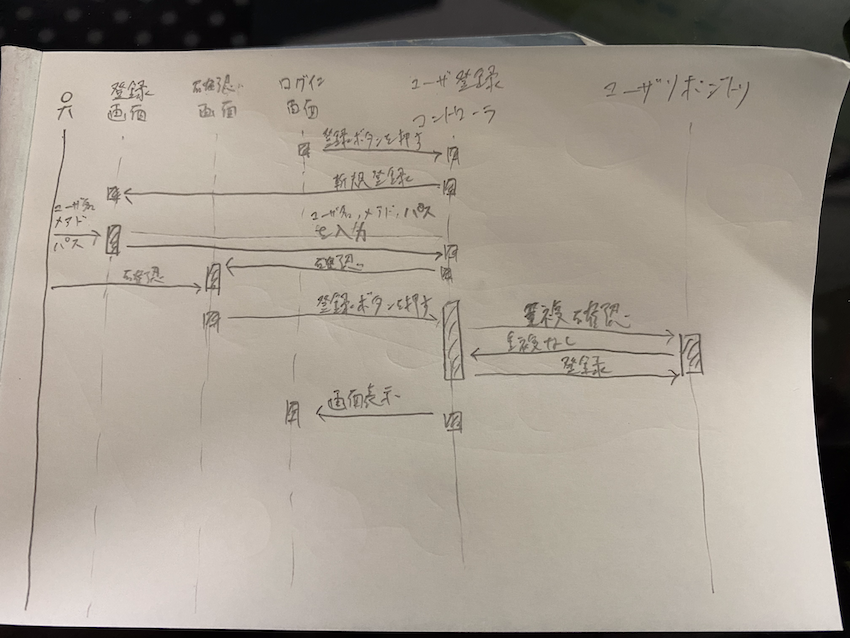 登録
画面
確認
画面
ログイン
画面
ユーザ登録
コントローラ
ユーザリポジトリ
登録ボタンを押す
新規登録
ユーザ名
メアド
パス
ユーザ名、メアド、パス
を入力
確認
確認
登録ボタンを押す
重複確認
重複なし
登録
画面表示